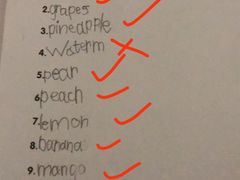 2.grapes
3.pineapple
4.Waterm
5.pear
6.peach
7.lemon
8.banana
9.mango